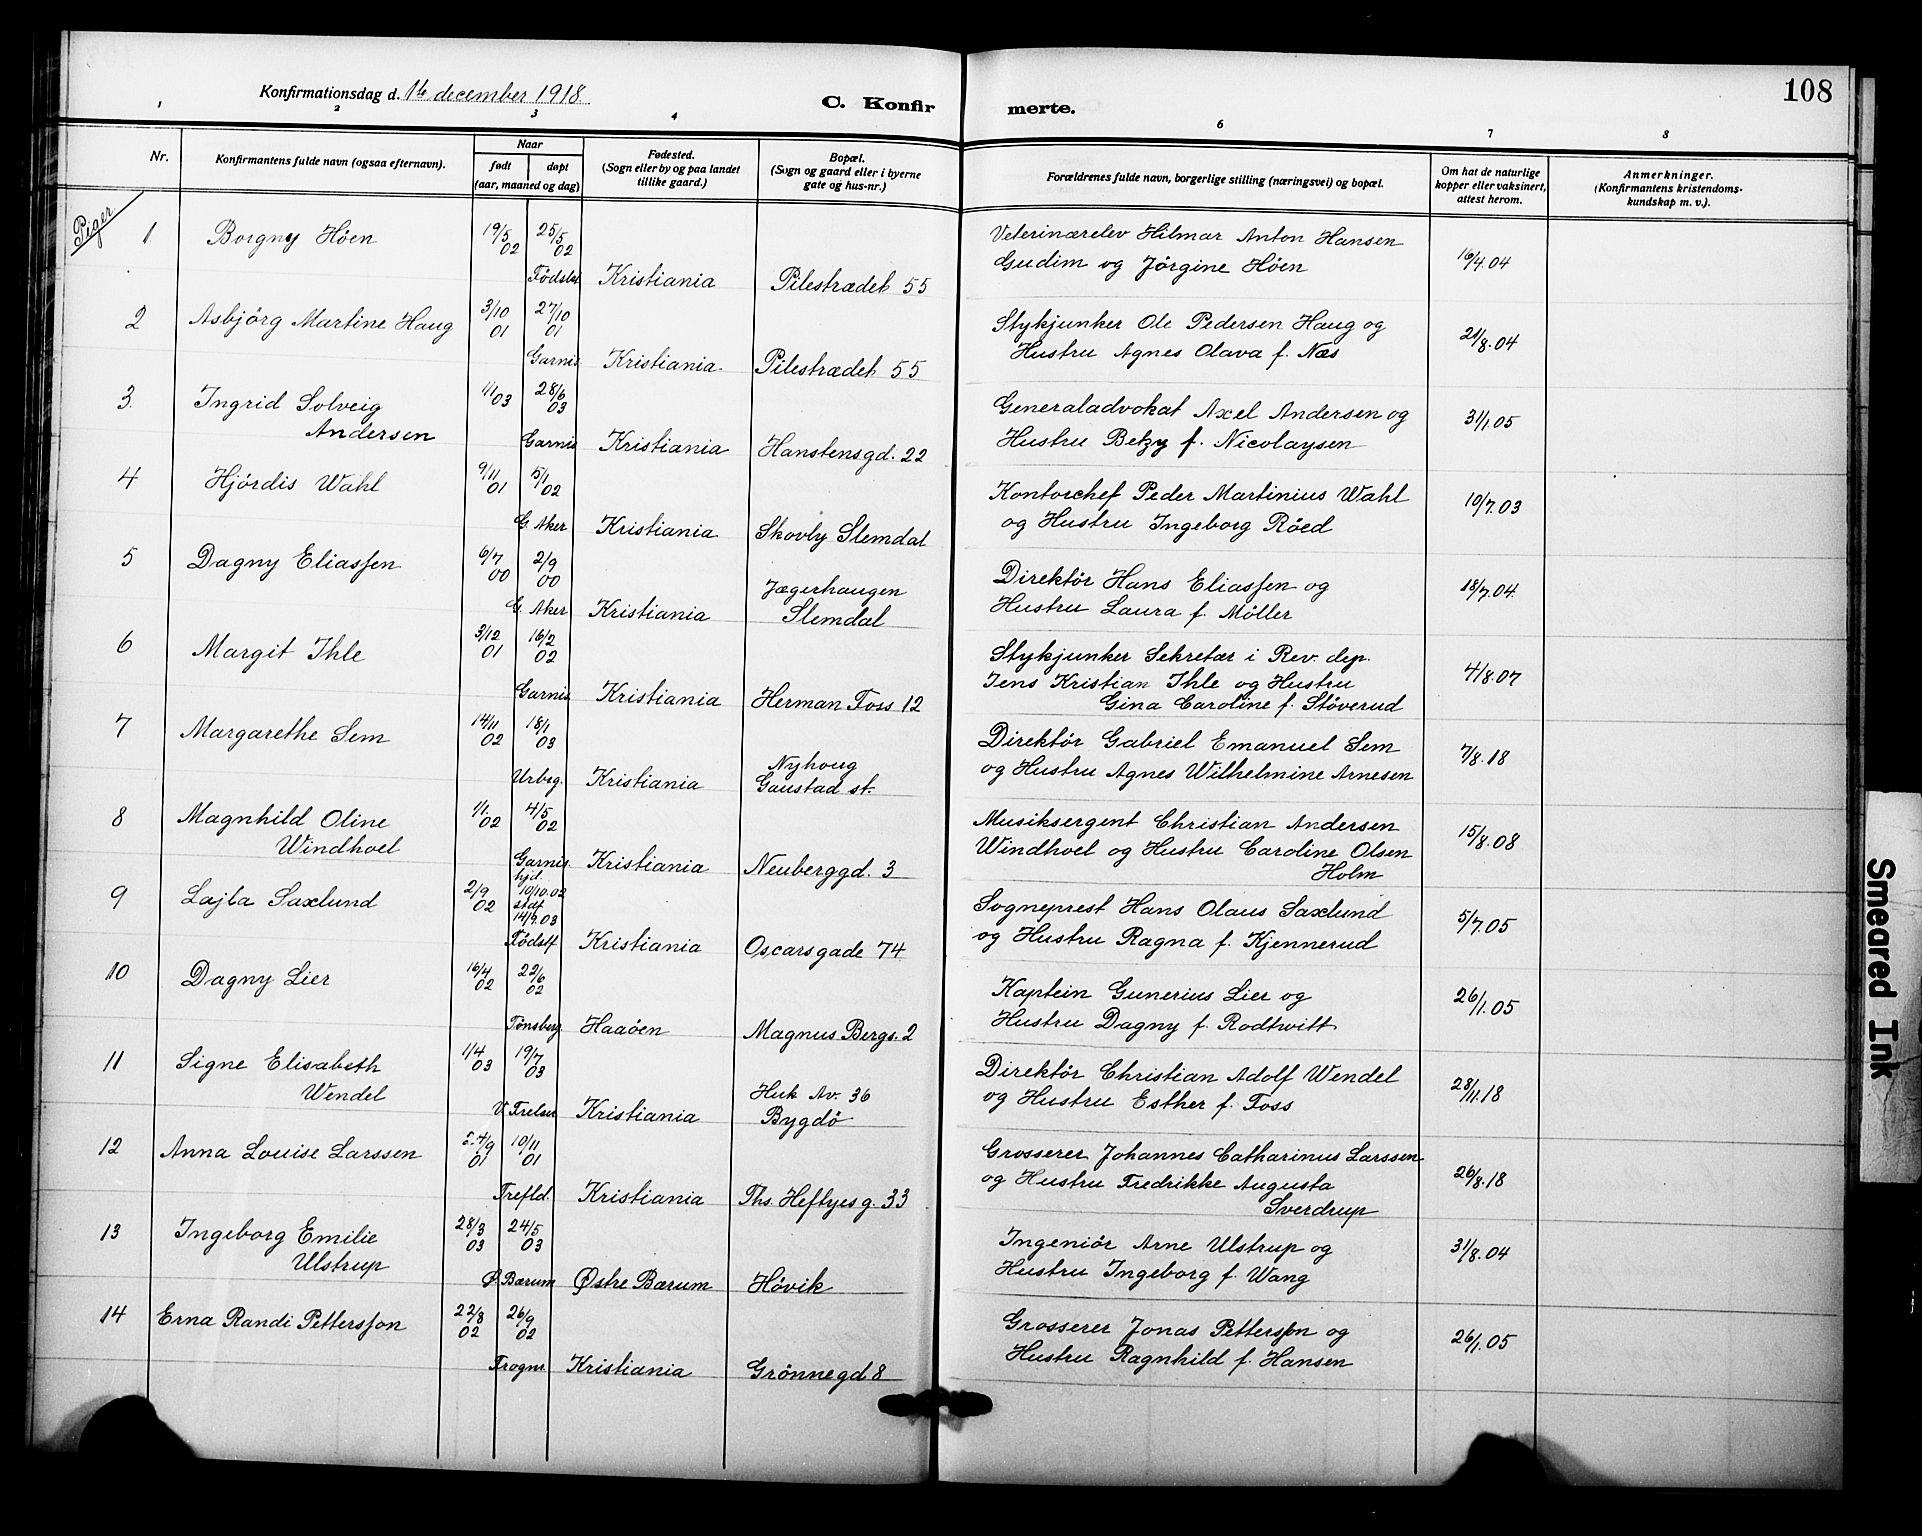 108
Konfirmationsdag d. 16 december 1918.
C. Konfir merte.
1 2 3 4 6 7 8
Nr.
Konfirmantens fulde navn (ogsaa efternavn).
Naar
født døpt
(aar, maaned og dag)
Fødested.
(Sogn eller by og paa landet
tillike gaard.)
Bopæl.
(Sogn og gaard eller i byerne
gate og hus-nr.)
Forældrenes fulde navn, borgerlige stilling (næringsvei) og bopæl.
Om hat de naturlige
kopper eller vaksinert,
attest herom.
Anmerkninger.
(Konfirmantens kristendoms-
kundskap m. v.).
Piger.
1 Borgny Höen 19/5 02 25/5 02 Veterinærelev Hilmar Anton Hansen
Födselst Kristiania Pilestrædet 55 Gudim og Jörgine Höen 16/4.04
2 Asbjörg Martine Haug 3/10 01 27/10 01 Stykjunker Ole Pedersen Haug og
Garnis. Kristiania Pilestrædet 55 Hustru Agnes Olava f. Næs 21/8.04
3. Ingrid Solveig 1/1 03 28/6 03 Generaladvokat Axel Andersen og
Andersen Garnis Kristiania Hanstensgd. 22 Hustru Betzy f. Nicolaysen 31/1.05
4 Hjördis Wahl 9/11 01 5/1 02 Kontorchef Peder Martinius Wahl
G. Aker Kristiania Skovly Slemdal og Hustru Ingeborg Röed 10/7.03
5 Dagny Eliassen 6/7 00 2/9 00 Jægerhaugen Direktör Hans Eliassen og
G. Aker Kristiania Slemdal Hustru Laura f. Möller 18/7.04.
6 Margit Ihle 3/12 01 16/2 02 Stykjunker Sekretær i Rev. dep.
Garnis. Kristiania Herman Foss 12 Jens Kristian Ihle og Hustru 4/8.07
Gina Caroline f. Stöverud
7 Margarethe Sem 14/11 02 18/1 03 Nyhoug Direktör Gabriel Emanuel Sem
Urbsg. Kristiania Gaustad st. og Hustru Agnes Wilhelmine Arnesen 7/8.18
8 Magnhild Oline 1/1. 02 4/5 02 Musiksergent Christian Andersen
Windhoel Garnis. Kristiania Neuberggd. 3 Windhoel og Hustru Caroline Olsen 15/8.08
Holm
9 Lajla Saxlund 2/9 02 hjd. 10/10.02 staf 14/9.03 Sogneprest Hans Olaus Saxlund
Födstf. Kristiania Oscarsgade 74 og Hustru Ragna f. Kjennerud 5/7.05
10 Dagny Lier 16/4 02 22/6 02 Kaptein Gunerius Lier og
Tönsberg Haaöen Magnus Bergs. 2 Hustru Dagny f. Rodtwitt 26/1.05
11 Signe Elisabeth 1/4 03 19/7 03 Huk Av. 36 Direktör Christian Adolf Wendel
Wendel V. Frelser Kristiania Bygdö og Hustru Esther f. Foss 28/11.18
12 Anna Louise Larssen 24/9 01 10/11 01 Grosserer Johannes Catharinus Larssen
Trefld. Kristiania Ths. Heftyes g. 33 og Hustru Fredrikke Augusta 26/8.18
Sverdrup
13 Ingeborg Emilie 28/3 03 24/5 03 Ingeniör Arne Ulstrup og
Ulstrup Ø. Bærum Østre Bærum Hövik Hustru Ingeborg f. Wang 31/8.04
14 Erna Randi Pettersson 22/8 02 26/9 02 Grosserer Jonas Petterssøn og
Frogner Kristiania Grönnegd 8 Hustru Ragnhild f. Hansen 26/1.05
Smeared Ink